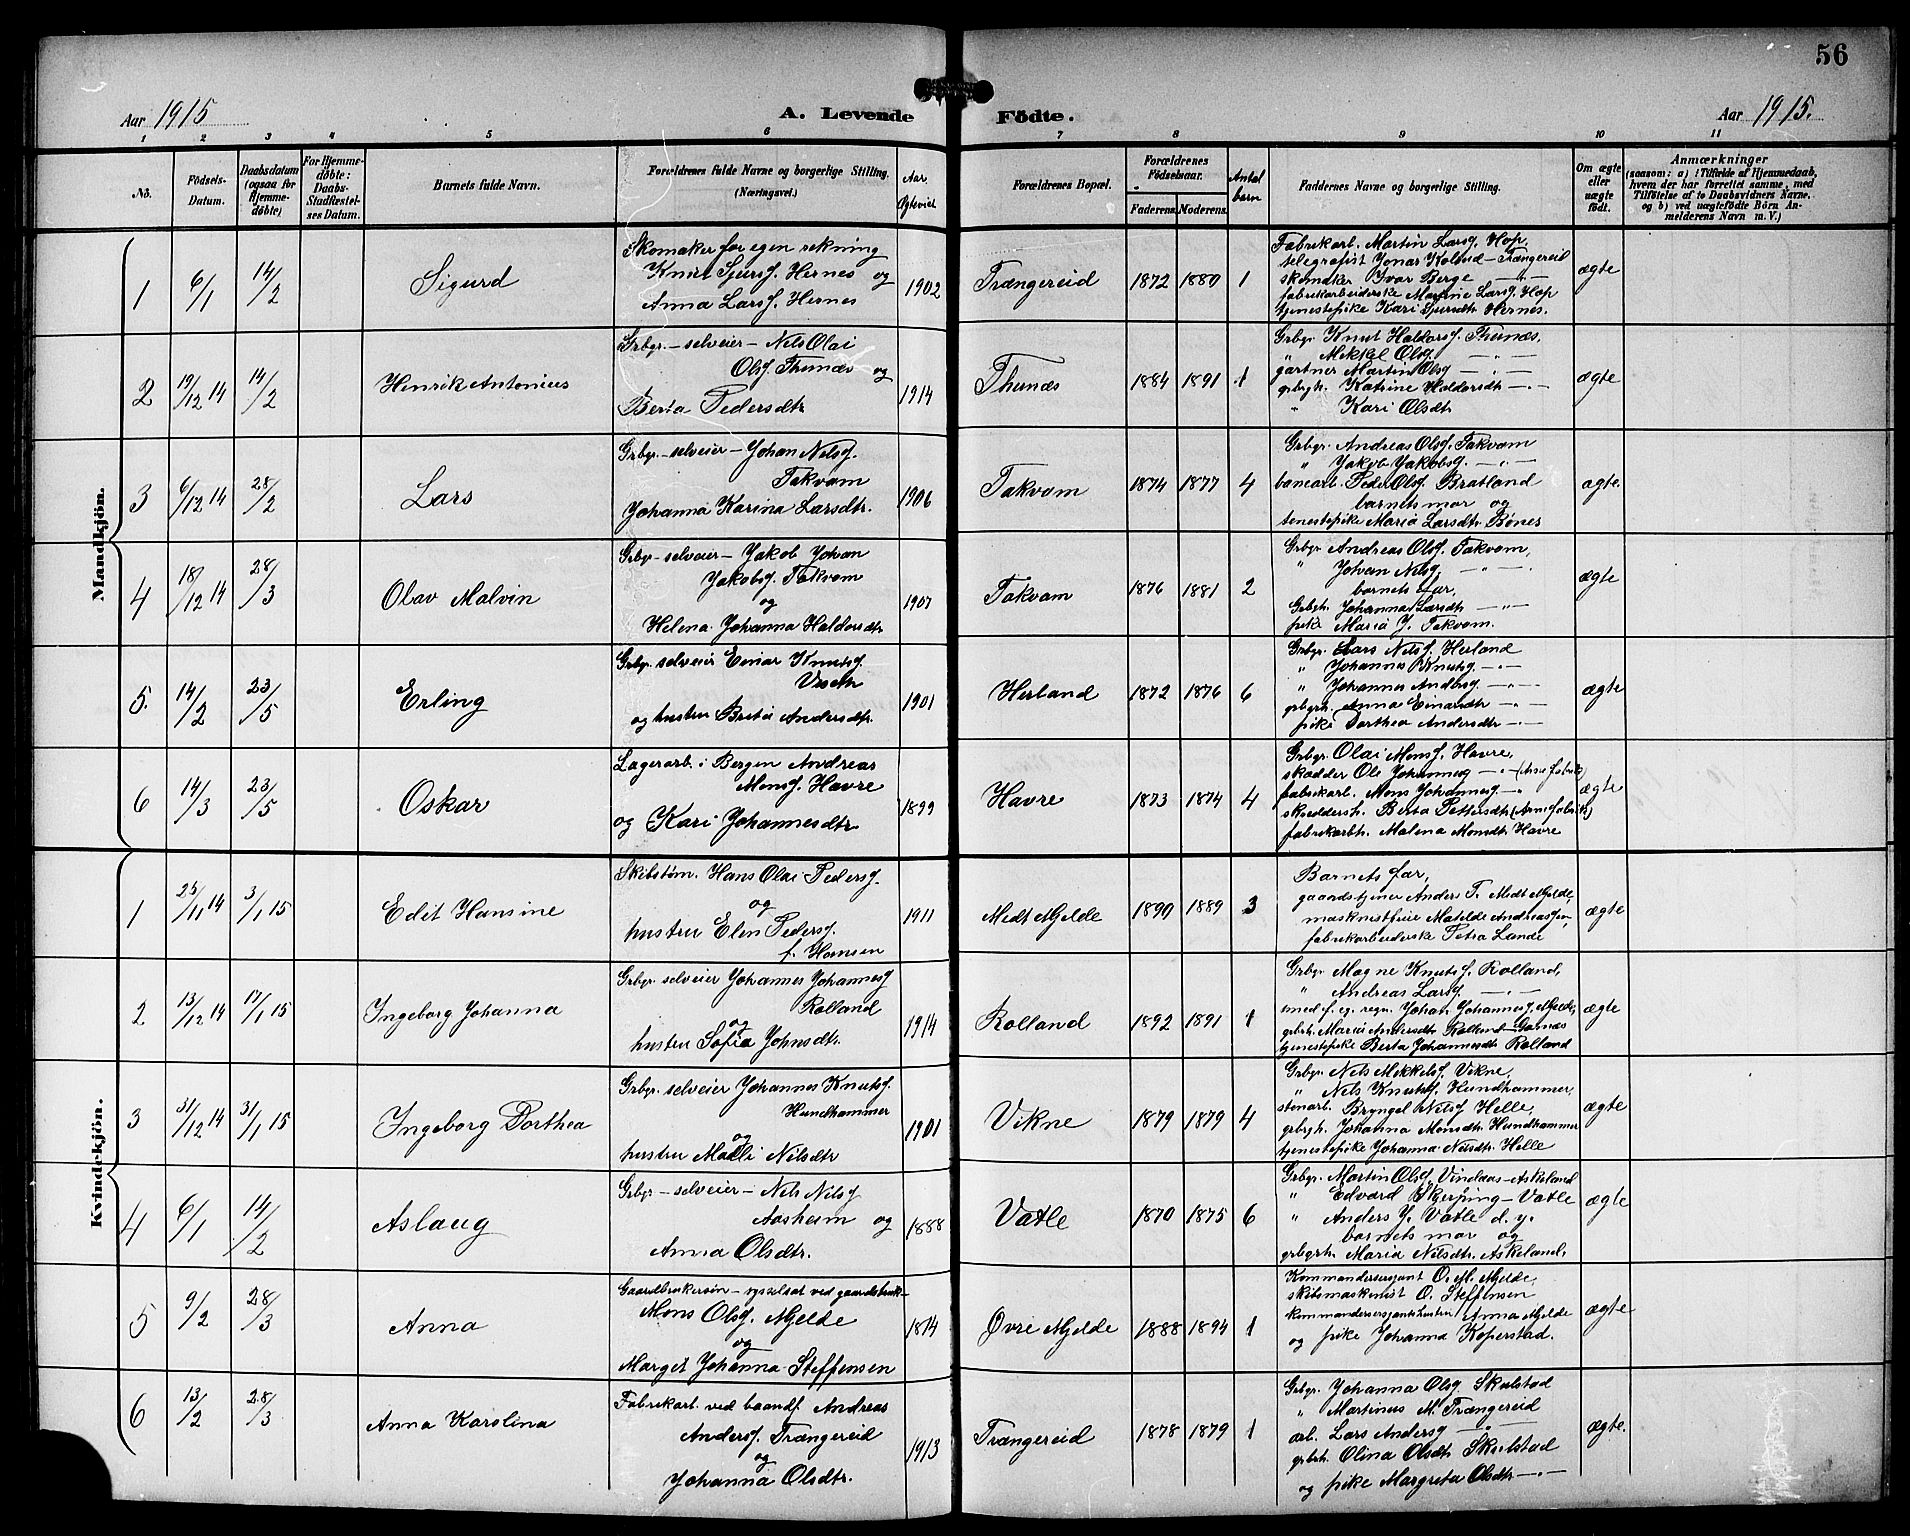 56
Aar 1915
A. Levende Födte.
Aar 1915.
1 2 3 4 5 6 7 8 9 10 11
No.
Födsels-Datum.
Daabsdatum (ogsaa for Hjemme-döbte)
For Hjemme-döbte: Daabs-Stadfæstel-ses Datum.
Barnets fulde Navn.
Forældrenes fulde Navne og borgerlige Stilling. (Næringsvei.)
Aar Egteviet
Forældrenes Bopæl.
Forældrenes Födselsaar.
Faderens. Moderens.
Antal barn
Faddernes Navne og borgerlige Stilling.
Om ægte eller uægte födt.
Anmærkninger
(saasom: a) i Tilfælde af Hjemmedaab,
hvem der har forrettet samme, med
Tilföielse af to Daabsvidners Navne,
og b) ved uægtefödte Börn An-
melderens Navn m. V.)
Mandkjön.
1 6/1 14/2 Sigurd
Skomaker for egen rekning
Knut Sjursf. Hernes og
Anna Larsf. Hernes
1902 Trængereid 1872 1880 1
Fabrikarb. Martin Larsf. Hop,
telegrafist Jonas Kolund - Trængereid
skomaker Ivar Berge — " —
fabrikarbeiderske Martine Larsf. Hop
tjenestepike Kari Sjursdtr Hernes.
ægte
2 19/12 14 14/2 Henrik Antonius
Grbgr. - selveier - Nils Olai
Olsf. Thunæs og
Berta Pedersdtr
1914 Thunæs 1884 1891 1
Grbgr. Knut Haldorsf. Thunæs,
" Mikkel Olsf. — " —
gartner Martin Olsf — " —
grbgrh. Katrine Haldorsdtr — " —
" Kari Olsdtr
ægte
3 6/12 14 28/2 Lars
Grbgr. - selveier - Johan Nilsf.
Takvam
Johanna Karina Larsdtr.
1906 Takvam 1874 1877 4
Grbgr. Andreas Olsf. Takvam
" Jakob Jakobsf. — " —
banearb. Peder Olsf. Bratland
barnets mor og
tenestepike Maria Larsdtr Bønes
ægte.
4 18/12 14 28/3 Olav Malvin
Grbgr. - selveier - Jakob Johan
Jakobsf. Takvam
og
Helena Johanna Haldorsdtr
1907 Takvam 1876 1881 2
Grbgr Andreas Olsf. Takvam,
" Johan Nilsf. — " —
barnets far,
Grbgrh. Johanna Larsdtr — " —
pike Maria J. Takvam.
ægte
5. 14/2 23/5 Erling
Grbgr. selveier Einar Knutsf.
og hustru Brita Andersdtr.
1901 Herland 1872 1876 6
Grbgr. Lars Nilsf. Herland
" Johannes Knutsf. — " —
" Johannes Andersf. — " —
grbgrh. Anna Einarsdtr — " —
pike Dorthea Andersdtr — " —
ægte
6 14/3 23/5 Oskar
Lagerarb. i Bergen Andreas
Monsf. Havre
og Kari Johannesdtr
1899 Havre 1873 1874 4
Grbgr. Olai Monsf. Havre,
skrædder Ole Johannesf — " — (Arne fabrik)
fabrikarb. Mons Johannesf — "
skrædderh. Berta Pettersdtr (Arne fabrik)
fabrikarbh. Malena Monsdtr Havre
ægte
Kvindekjön.
1 25/11 14 3/1 15 Edit Hansine
Skibstøm. Hans Olai Pedersf.
og
hustru Elen Pedersf.
f. Hansen
1911 Midt Mjelde 1890 1889 3
Barnets far,
gaardstjener Anders T. Midt Mjelde,
maskinistfrue Matilde Andreassen,
fabrikarbeiderske Petra Lande
ægte
2 13/12 14 17/1 15 Ingeborg Johanna
Grbgr. selveier Johannes Johannesf
Rolland
og
hustru Sofia Johnsdtr.
1914 Rolland 1892 1891 1
Grbgr. Magne Knutsf. Rolland,
" Andreas Larsf. — " —
smed f. eg. regn. Johan Johannesf. Mjelde,
grbrh. Maria Andersdtr Rolland - Garnæs
tjenestepike Berta Johannesdtr Rolland
ægte
3 31/12 14 31/1 15 Ingeborg Dorthea
Grbgr. selveier Johannes Knutsf.
Hundhammer
og
hustru Malli Nilsdtr
1901 Vikne 1879 1879 4
Grbgr. Nils Mikkelsf. Vikne,
" Nils Knutsf. Hundhammer,
stenarb. Bryngel Nilsf Helle,
grbrgh. Johanna Monsdtr Hundhammer
tjenestepike Johanna Nilsdtr. Helle
ægte
4 6/1 14/2 Aslaug
Grbgr. - selveier - Nils Nilsf
Aasheim og
Anna Olsdtr.
1888 Vatle 1870 1875 6
Grbgr. Martin Olsf. Vindaas - Askeland
" Edvard Skjerping - Vatle
" Anders J. Vatle d. y.
barnets mor og
grbgrh. Maria Nilsdtr. Askeland.
ægte
5 9/2 28/3 Anna
Gaardbrukersøn - sysselsat ved gaardsbruk -
Mons Olsf. Mjelde
og
Marget Johanna Steffensen
1814 Øvre Mjelde 1888 1894 1
Kommandersersjant O. M. Mjelde,
skibsmaskinist O. Steffensen
kommandersersjantshustru Anna Mjelde
og pike Johanna Koperstad.
ægte
6 13/2 28/3 Anna Karolina
Fabrikarb. ved baandf. Andreas
Andersf. Trængereid
og
Johanna Olsdtr.
1913 Trængereid 1878 1879 1
Grbgr. Johanna Olsf. Skulstad
" Martinus M. Trængereid
arb. Lars Andersf — " —
grbrh. Olina Olsdtr Skulstad
og pike Margreta Olsdtr — " —
ægte.